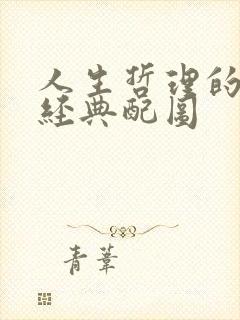 人生哲理的
經典配圖
青葦